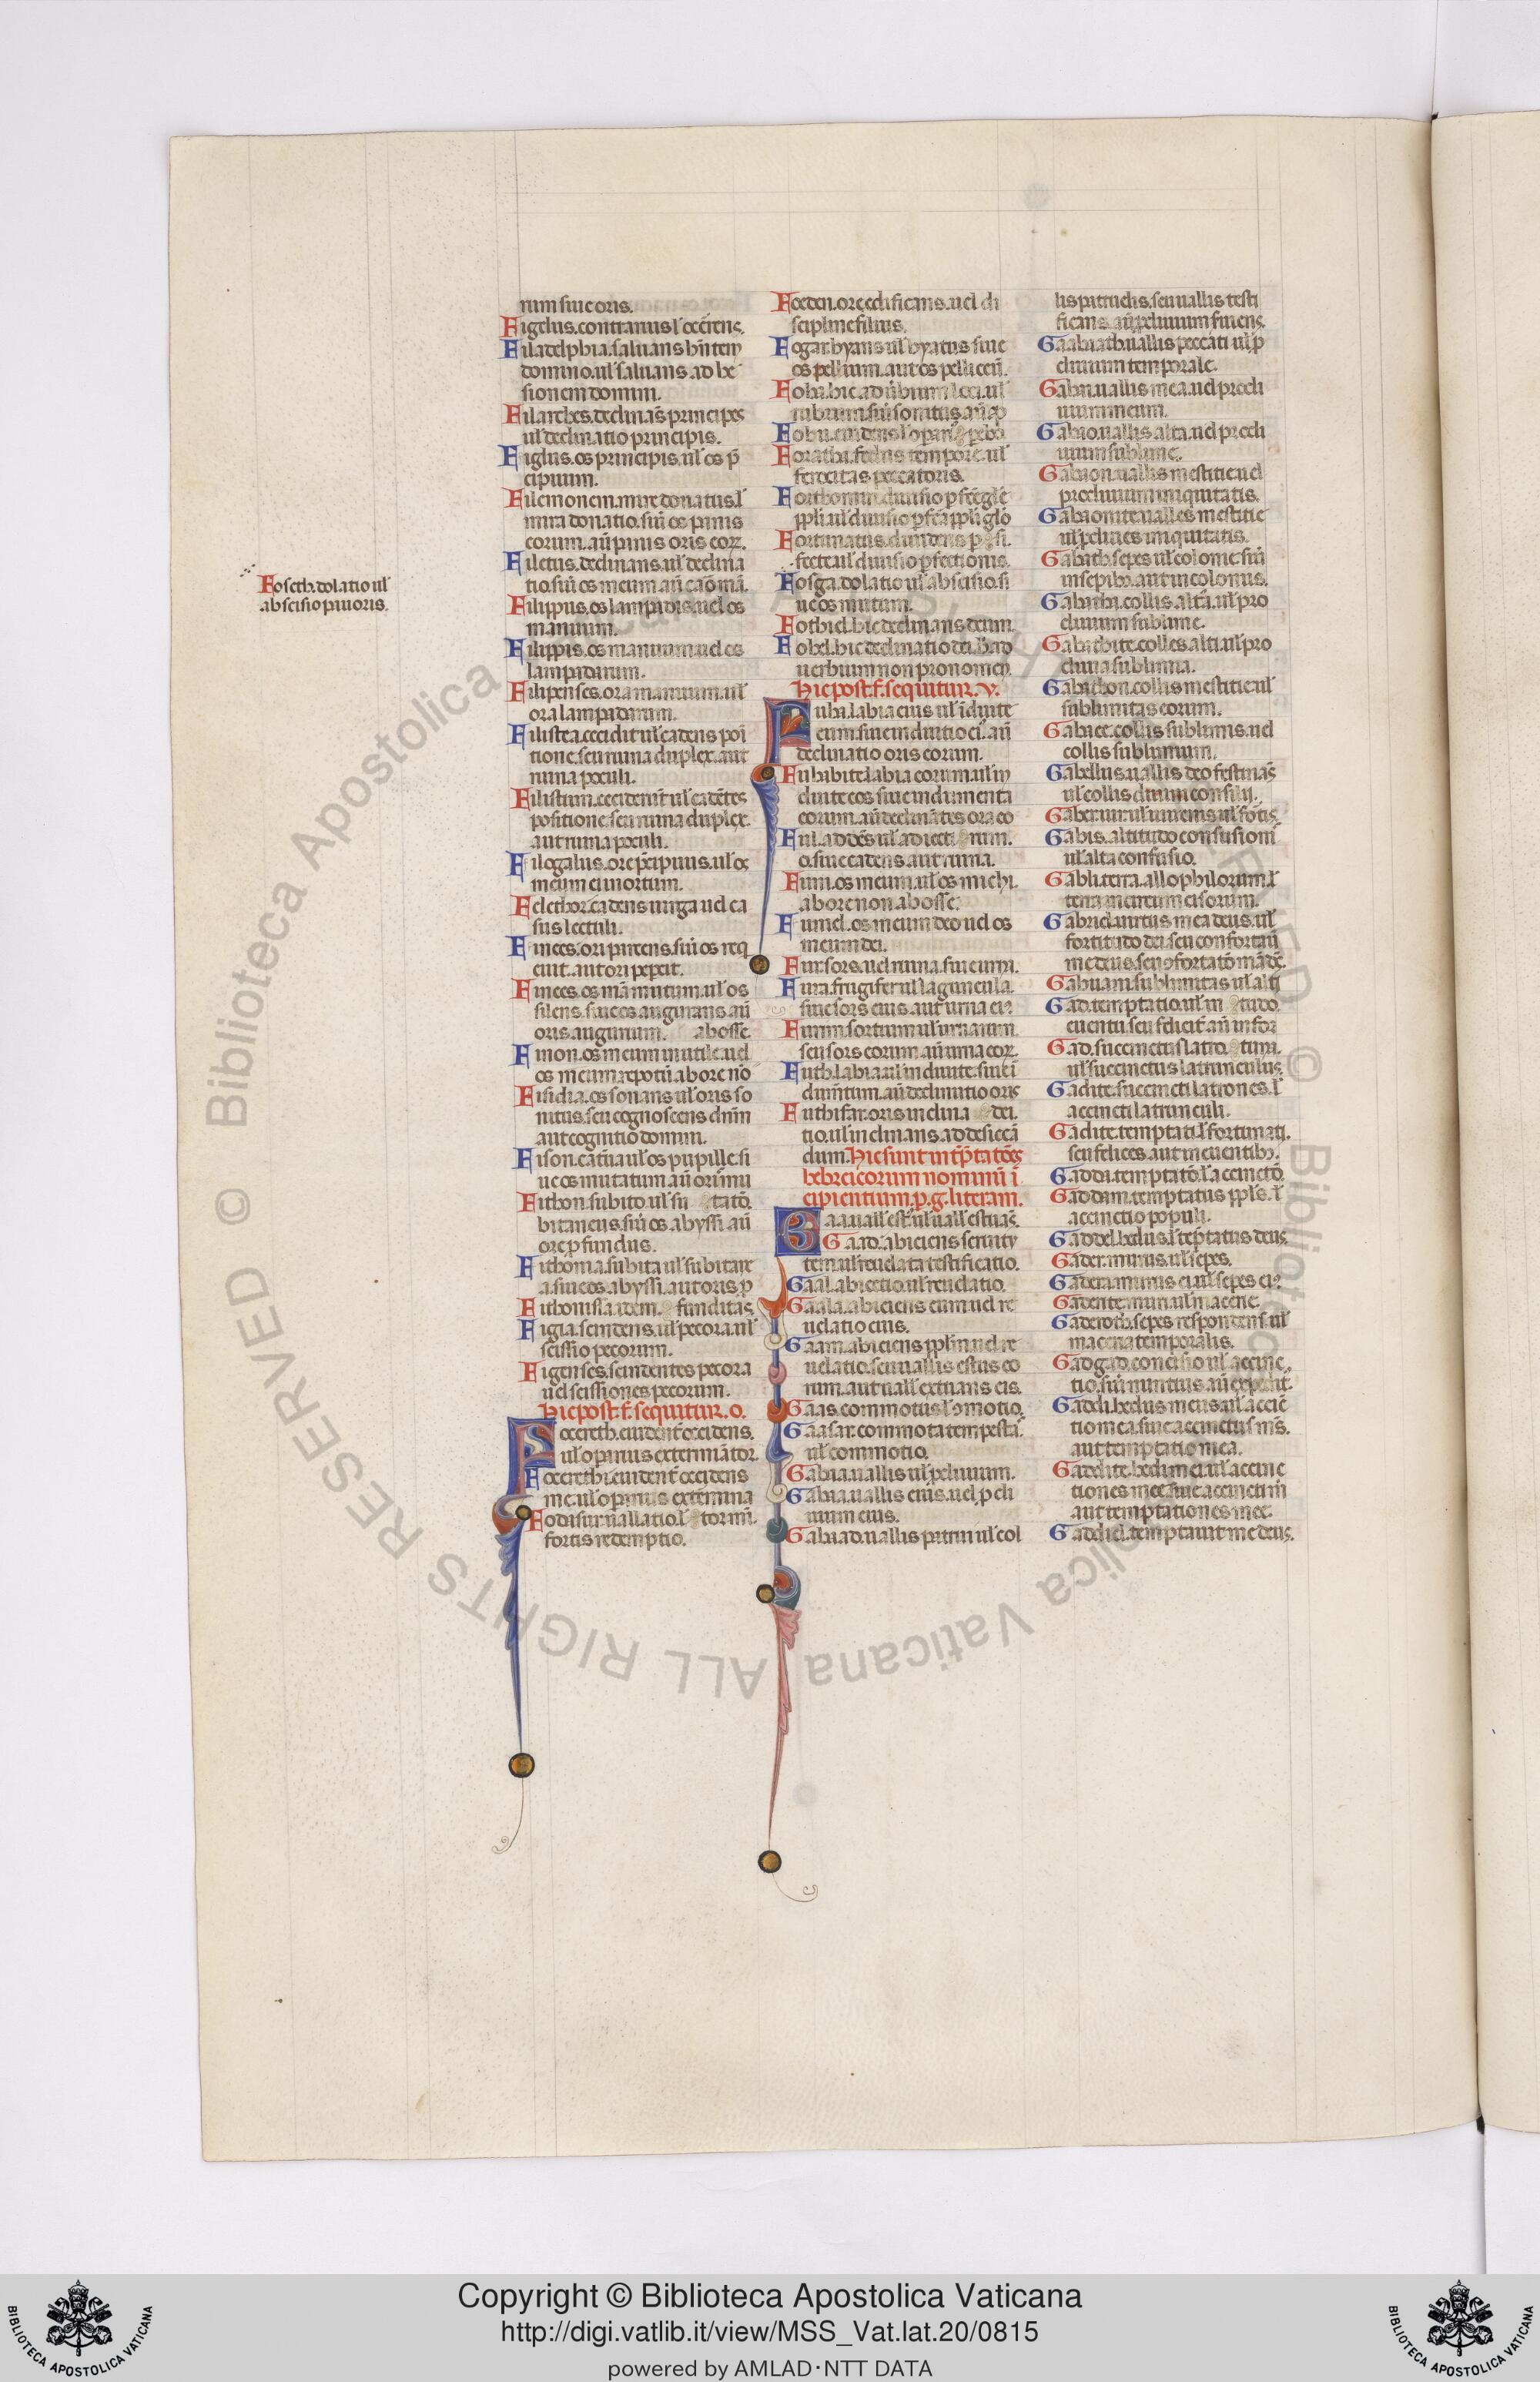 rum siue oris.
Figelus. contrarius l' occures.
Filadelphia. saluans h̄ntem
domino. ul' saluans. ad he
sionem domini.
Filarches. declinās principes
ul' declinatio principis.
Figlus. os principis. ul' os p̄
cipuum.
Filemonem. mire donatus. l'
mira donatio. siū os panis
eorum. aū panis oris eoꝝ.
Filetus. declinans. ul' declina
tio. siū os meum aū
Filippus. os lampadis. uel os
manuum.
Filippis. os manuum uel os
lampadarum.
Filipenses. ora manuum. ul'
ora lampadarum.
Filistea. cecidit ul' cadens poī
tione. seu ruina duplex. aut
ruina poculi.
Filistiim. ceciderūt ul' cadētes
positione. seu ruina duplex.
aut ruina poculi.
Filogalus. ore p̄cipuus. ul' os
meum ei mortum.
Feletbor. cadens uirga uel ca
sus lectuli.
Finees. ori parcens. siū os req
eiut. aut ori peperit.
Finees. os mā mutum. ul' os
silens. siue os augurans. aū
oris augurium. ab osse.
Finon. os meum inutile. uel
os meum repotū ab ore nō
Fisidia. os sonans ul' oris so
nitus. seu cognoscens dn̄m
aut cognitio domini.
Fison. ul' os pupille. si
ue os mutatum aū ori mu
Fithon. subito. ul' su tatō.
bitaneus. siū os. abyssi. aū
ore ꝓfundus.
Fithonia. subita ul' subitane
a. siue os. abyssi. aut oris. ꝓ
Fithonissa. idem. funditas.
Frigia. scindens. ul' pecora. ul'
scissio pecorum.
Frigenses. scindentes pecora
uel scissiones pecorum.
Hic post. f. sequitur. o.
Focereth. euident' occidens.
ul' opimus extermīator.
Focerethi. euident' occidens
me. ul' opimus extermina
Fodisur. uallatio. l' tor mī.
fortis redemptio.
Foseth. dolatio ul'
abscisio pīu oris.
Foeden. ore edificans. uel di
scipline filius.
Fogar. hyans ul' hyatus siue
os pellium. aut os pelliceū.
Fobi. hic. aduerbium loci. ul'
rubrum. siū sonitus. aū
Fobu.
Forathi. fertilis tempore. ul'
feracitas peccatoris.
Forthomin. diuisio ꝑfectē gl'e
ppl'i. ul' diuisio ꝑfcā ppl'i glō
Fortunatus. diuidens ꝑ si.
fecte ul' diuisio ꝑfectionis.
Fosga. dolatio ul' abscisio. si
ue os mutum.
Fothiel. hic declinans deum.
Fobel. hic declinatio dei. h̄ ad
uerbium non pronomen.
Hic post. f. sequitur. v.
Fubi. labia eius ul' īduite
eum. siue induitio ei. aū
declinatio oris eorum.
Fuhibite. labia eorum. ul' in
duite eos siue indumenta
eorum. aū declinātes ora eo
Ful. addēs ul' adiecti rum.
o. siue cadens. aut ruina.
Fum. os meum. ul' os michi.
ab ore non ab osse.
Fumel. os meum deo uel os
meum dei.
Fur. sors. uel ruina. siue urna.
Fura. frugifer ul' laguncula.
siue sors eius. aut urna eiꝰ.
Furim. sortium ul' urnarum.
seu sors eorum. aū urna eoꝝ.
Futh. labia. ul' induite. siue ī
duūtum. aū declinatio oris
Futhifar. oris inclina dei.
tio. ul' inclinans. ad desiccā
dum. Hic sunt intp̄tatōes
hebreicorum nominū ī
cipientium. p. g. literam.
Gaa. uall' est. ul' uall' estuās.
Gaad. abiciens seruitu
tem. ul' reuelata testificatio.
Gaal. abiectio. ul' reuelatio.
Gaala. abiciens eum. uel re
uelatio eius.
Gaam. abiciens ppl'm uel re
uelatio. seu uallis estus eo
rum. aut uall' extuans eis.
Gaas. commotus l' ꝯmotio.
Gaasar. commota tempestā.
ul' commotio.
Gabaa. uallis ul' ꝓcliuium.
Gabaa. uallis eius. uel ꝓcli
uium eius.
Gabaad. uallis patrui ul' col
lis patruelis. seu uallis testi
ficans. aū ꝓcliuium finiens.
Gaabiath. uallis peccati ul' ꝓ
cliuium temporale.
Gabai. uallis mea. uel procli
uium meum.
Gabao. uallis. alta. uel procli
uium sublime.
Gabaon. uallis mestitie uel
procliuium iniquitatis.
Gabaonite. ualles mestitie
ul' ꝓcliues iniquitatis.
Gabath. sepes ul' colonie. siū
in sepibꝰ. aut in colonus.
Gabatha. collis. alta. ul' pro
cliuium sublime.
Gabathite. colles. alti. ul' pro
cliuia sublimia.
Gabathon. collis mestitie ul'
sublimitas eorum.
Gabaee. collis sublimis. uel
collis sublimium.
Gabellus. uallis deo festinās
ul' collis diuum consilij.
Gaber. uir. ul' iuuenis ul' fortis.
Gabis. altitudo confusionī
ul' alta confusio.
Gabli. terra. allophilorum. l'
terra incircumcisorum.
Gabriel. uirtus mea deus. ul'
fortitudo dei. seu confortaū
me deus. seu ꝯfortatō mā dē.
Gabuam. sublimitas ul' alti
Gad. temptatio. ul' in tudo.
euentu. seu felicit'. aū in for
Gad. succinctus latro. tuna.
ul' succinctus latrunculus.
Gadite. succincti latrones. l'
accincti latrunculi.
Gadite. temptati. l' fortunati.
seu felices. aut in euentibꝰ.
Gaddi. temptatō. l' accinctō.
Gaddim. temptatus ppl's. l'
accinctio populi.
Gaddel. hedus. l' tēptatus deus
Gader. murus. ul' sepes.
Gadera. murus ei ul' sepes eiꝰ.
Gaderite. muri. ul' macerie.
Gaderoth. sepes respondens. ul'
maceria temporalis.
Gadgad. concisio ul' accinc
tio. siū nuntius. aū expedit.
Gaddi. hedus meus. ul' accīc
tio mea. siue accinctus ms̄.
aut temptatio mea.
Gadelite. hedi mei. ul' accinc
tiones mee. siue accincti m̄
aut temptationes mee.
Gaddiel. temptauit me deus.
Copyright © Biblioteca Apostolica Vaticana
http://digi.vatlib.it/view/MSS_Vat.lat.20/0815
powered by AMLAD·NTT DATA